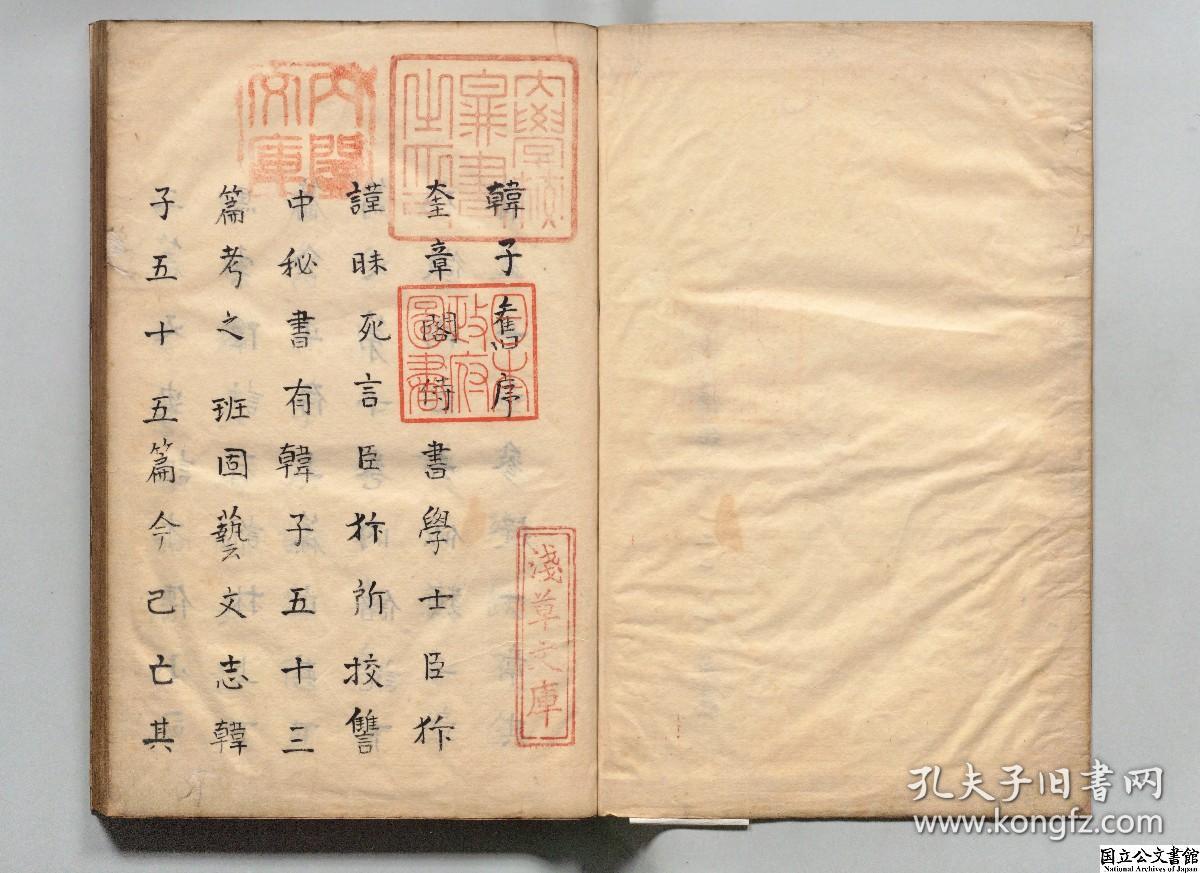 韓子舊序
奎章閣侍書學士臣犿
謹昧死言臣犿所挍讐
中秘書有韓子五十三
篇考之班固藝文志韓
子五十五篇今已亡其
大學校
弆書
之印
日本
政府
圖書
內閣
文庫
淺草文庫
孔夫子旧书网
www.kongfz.com
国立公文書館
National Archives of Japan